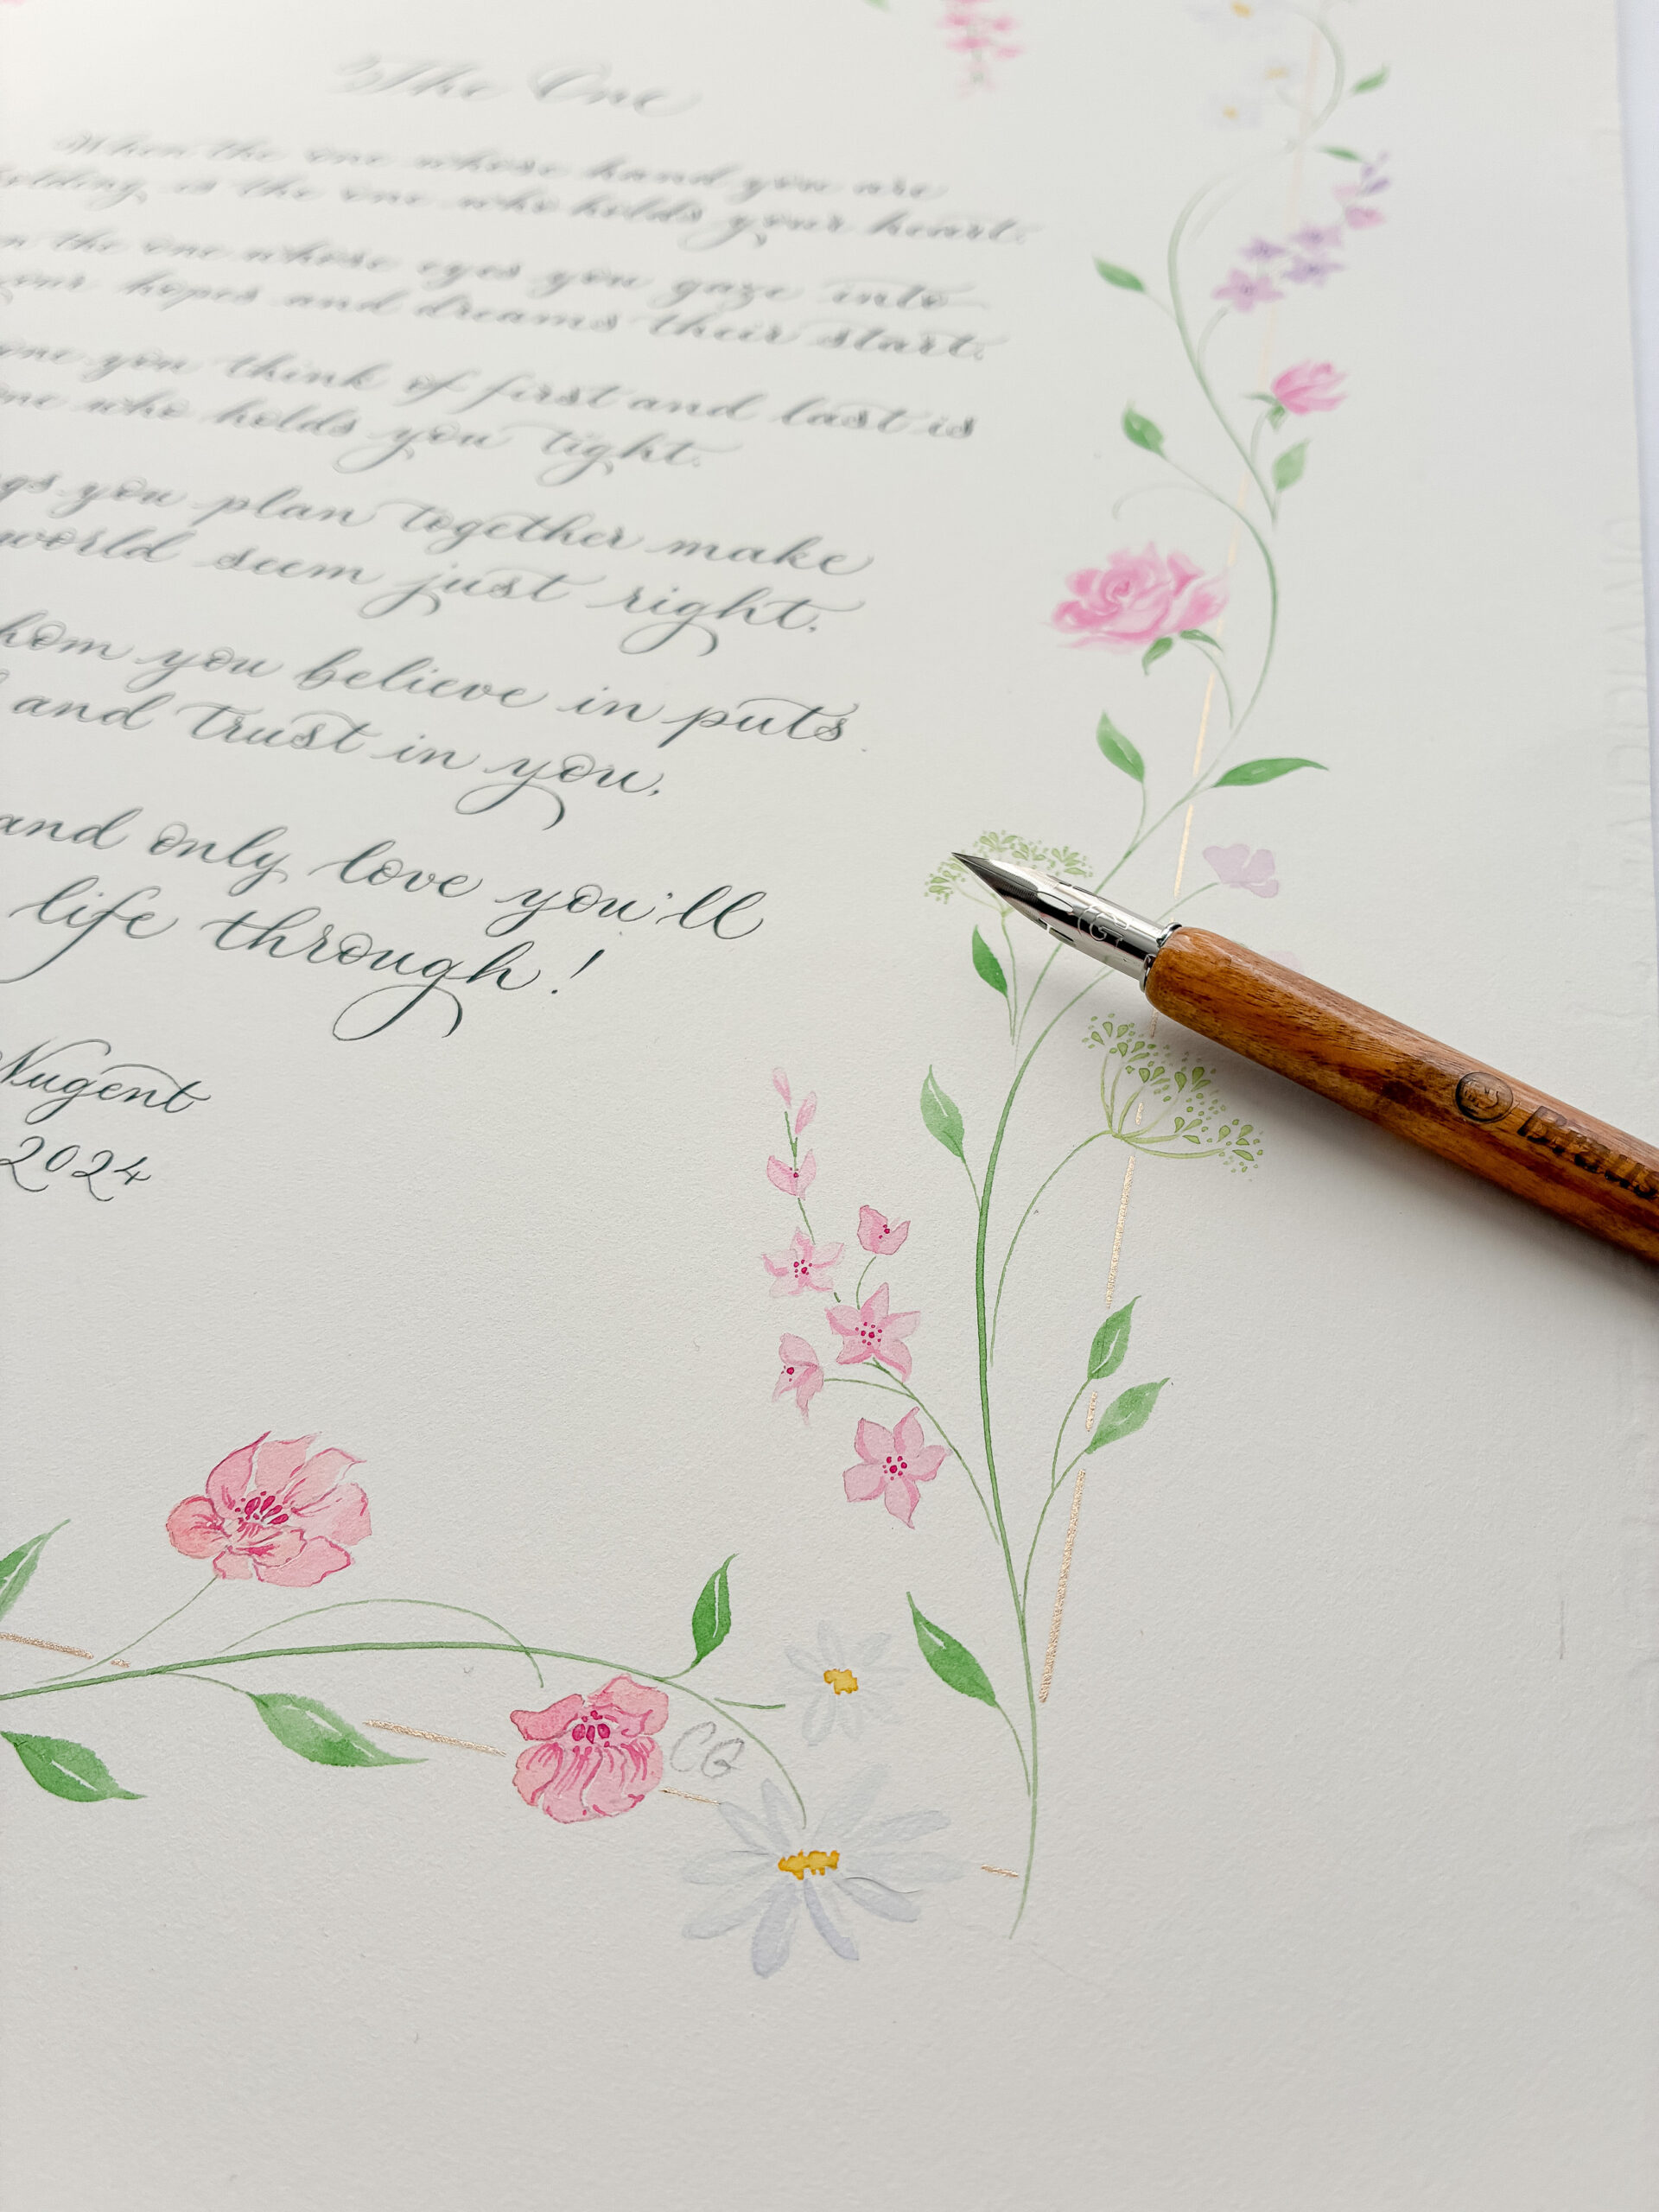 The One
When the one whose hand you are
holding, is the one who holds your heart.
the one whose eyes you gaze into
hopes and dreams their start.
one you think of first and last is
who holds you tight.
you plan together make
world seem just right.
whom you believe in puts
and trust in you,
and only love you'll
life through!
Nugent
2024
G
CQ